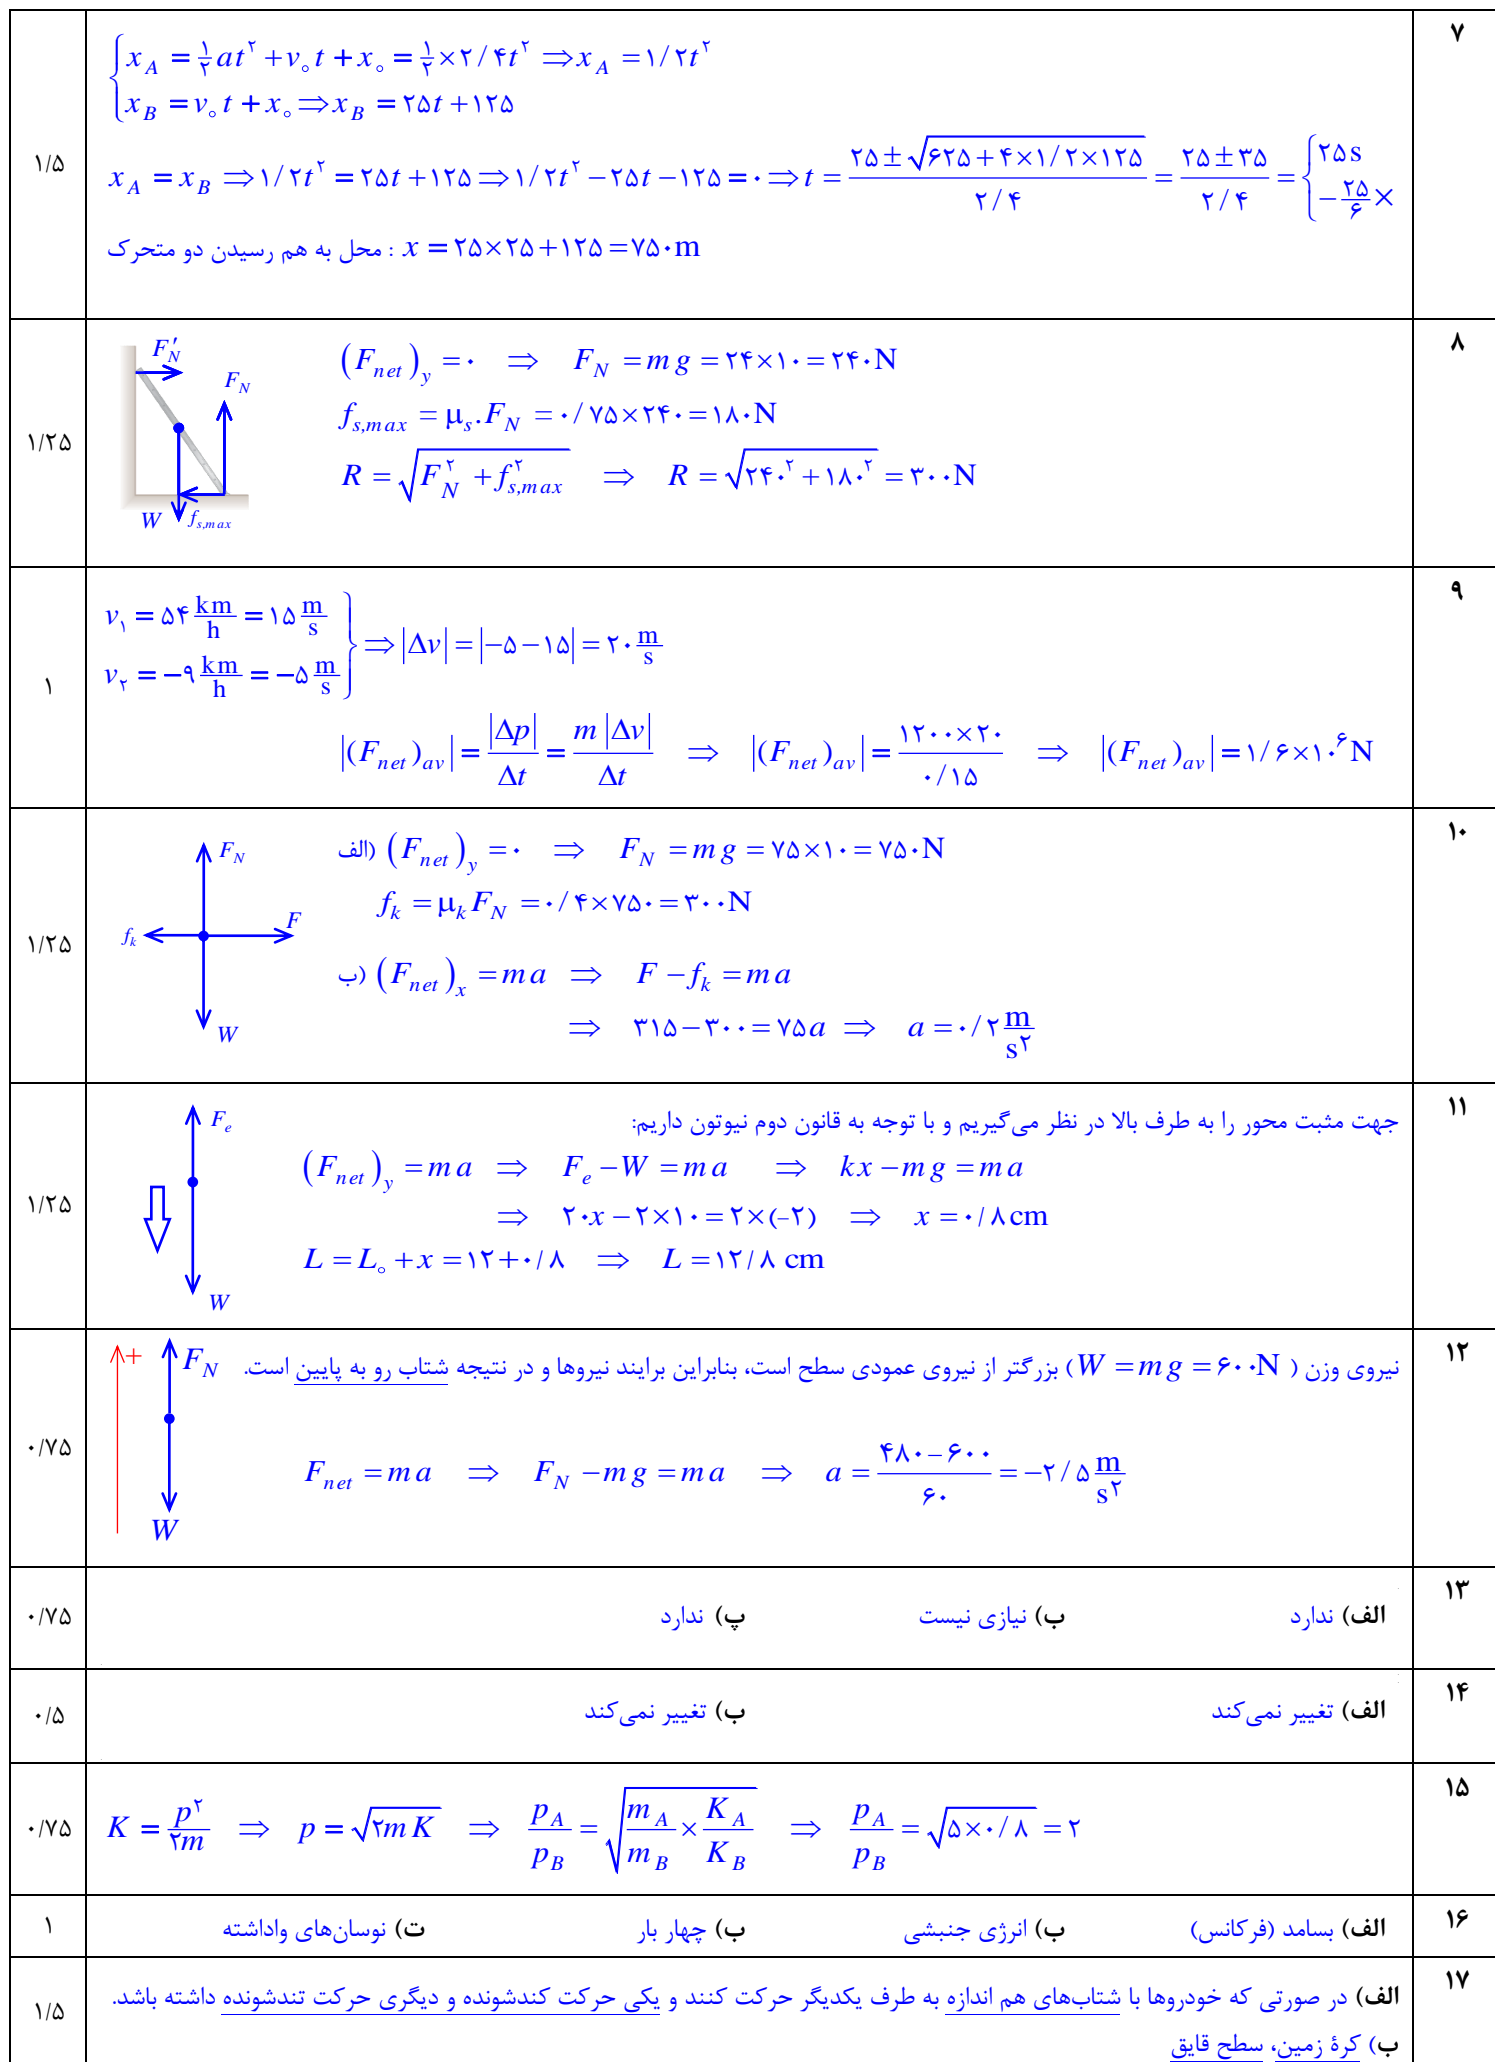 ۷
x_A = ½at² + v∘t + x∘ = ½×۲/۴t² ⇒ x_A = ۱/۲t²
x_B = v∘t + x∘ ⇒ x_B = ۲۵t + ۱۲۵
x_A = x_B ⇒ ۱/۲t² = ۲۵t + ۱۲۵ ⇒ ۱/۲t² − ۲۵t − ۱۲۵ = ۰ ⇒ t = (۲۵ ± √(۶۲۵ + ۴×۱/۲×۱۲۵)) / ۲/۴ = (۲۵ ± ۳۵) / ۲/۴ = { ۲۵s , −۲۵/۶ ×
محل به هم رسیدن دو متحرک : x = ۲۵×۲۵+۱۲۵ = ۷۵۰m
۱/۵
۸
F′_N
F_N
W
f_s,max
(F_net)_y = ۰ ⇒ F_N = mg = ۲۴×۱۰ = ۲۴۰N
f_s,max = μ_s.F_N = ۰/۷۵×۲۴۰ = ۱۸۰N
R = √(F_N² + f_s,max²) ⇒ R = √(۲۴۰² + ۱۸۰²) = ۳۰۰N
۱/۲۵
۹
v_۱ = ۵۴ km/h = ۱۵ m/s
v_۲ = −۹ km/h = −۵ m/s } ⇒ |Δv| = |−۵−۱۵| = ۲۰ m/s
|(F_net)_av| = |Δp|/Δt = m|Δv|/Δt ⇒ |(F_net)_av| = ۱۲۰۰×۲۰ / ۰/۱۵ ⇒ |(F_net)_av| = ۱/۶×۱۰^۶ N
۱
۱۰
F_N
F
f_k
W
الف) (F_net)_y = ۰ ⇒ F_N = mg = ۷۵×۱۰ = ۷۵۰N
f_k = μ_k F_N = ۰/۴×۷۵۰ = ۳۰۰N
ب) (F_net)_x = ma ⇒ F − f_k = ma
⇒ ۳۱۵−۳۰۰ = ۷۵a ⇒ a = ۰/۲ m/s²
۱/۲۵
۱۱
جهت مثبت محور را به طرف بالا در نظر می‌گیریم و با توجه به قانون دوم نیوتون داریم:
F_e
W
(F_net)_y = ma ⇒ F_e − W = ma ⇒ kx − mg = ma
⇒ ۲۰x − ۲×۱۰ = ۲×(−۲) ⇒ x = ۰/۸cm
L = L∘ + x = ۱۲+۰/۸ ⇒ L = ۱۲/۸ cm
۱/۲۵
۱۲
نیروی وزن ( W = mg = ۶۰۰N) بزرگتر از نیروی عمودی سطح است، بنابراین برایند نیروها و در نتیجه شتاب رو به پایین است.
+
F_N
W
F_net = ma ⇒ F_N − mg = ma ⇒ a = (۴۸۰−۶۰۰)/۶۰ = −۲/۵ m/s²
۰/۷۵
۱۳
الف) ندارد ب) نیازی نیست پ) ندارد
۰/۷۵
۱۴
الف) تغییر نمی‌کند ب) تغییر نمی‌کند
۰/۵
۱۵
K = p²/۲m ⇒ p = √(۲mK) ⇒ p_A/p_B = √(m_A/m_B × K_A/K_B) ⇒ p_A/p_B = √(۵×۰/۸) = ۲
۰/۷۵
۱۶
الف) بسامد (فرکانس) ب) انرژی جنبشی ب) چهار بار ت) نوسان‌های واداشته
۱
۱۷
الف) در صورتی که خودروها با شتاب‌های هم اندازه به طرف یکدیگر حرکت کنند و یکی حرکت کندشونده و دیگری حرکت تندشونده داشته باشد.
ب) کرۀ زمین، سطح قایق
۱/۵